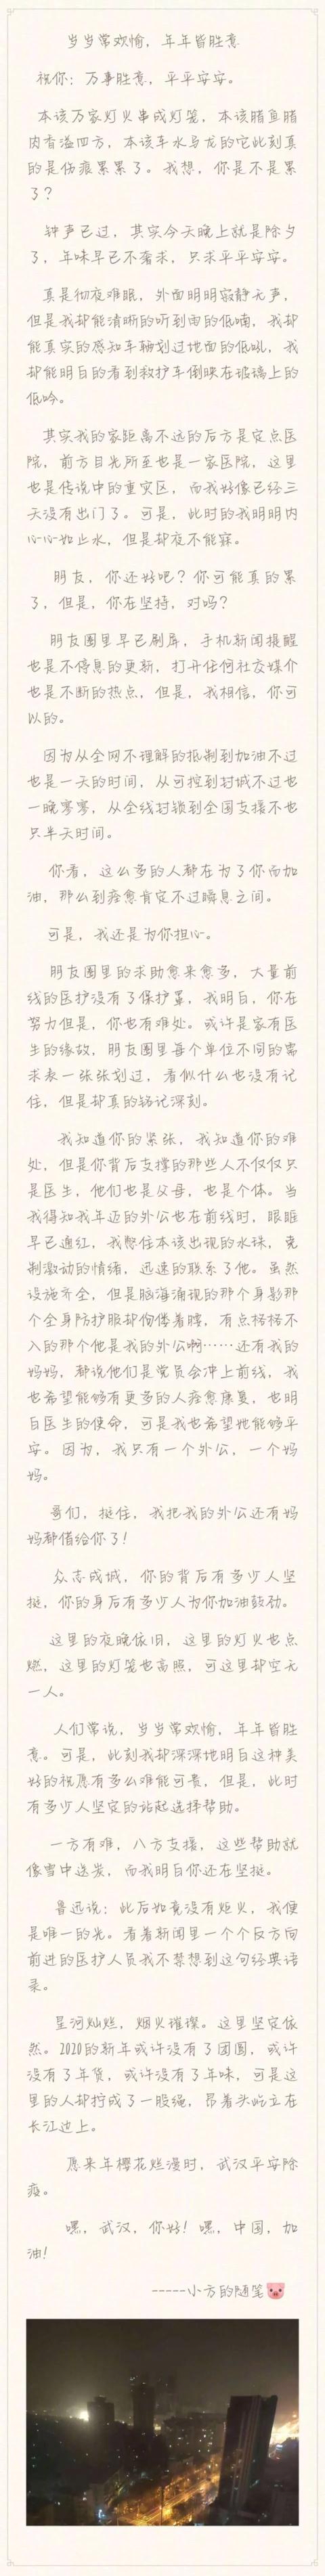 岁岁常欢愉，年年皆胜意
祝你：万事胜意，平平安安。
本该万家灯火串成灯笼，本该腊鱼腊
肉香溢四方，本该车水马龙的它此刻真
的是伤痕累累了。我想，你是不是累
了？
钟声已过，其实今天晚上就是除夕
了，年味早已不奢求，只求平平安安。
真是彻夜难眠，外面明明寂静无声，
但是我却能清晰的听到雨的低喃，我却
能真实的感知车辆划过地面的低吼，我
却能明白的看到救护车倒映在玻璃上的
低吟。
其实我的家距离不远的后方是定点医
院，前方目光所至也是一家医院，这里
也是传说中的重灾区，而我好像已经三
天没有出门了。可是，此时的我明明内
心心如止水，但是却夜不能寐。
朋友，你还好吧？你可能真的累
了，但是，你在坚持，对吗？
朋友圈里早已刷屏，手机新闻提醒
也是不停息的更新，打开任何社交媒介
也是不断的热点，但是，我相信，你可
以的。
因为从全网不理解的抵制到加油不过
也是一天的时间，从可控到封城不过也
一晚寥寥，从全线封锁到全国支援不也
只半天时间。
你看，这么多的人都在为了你而加
油，那么到痊愈肯定不过瞬息之间。
可是，我还是为你担心。
朋友圈里的求助愈来愈多，大量前
线的医护没有了保护罩，我明白，你在
努力但是，你也有难处。或许是家有医
生的缘故，朋友圈里每个单位不同的需
求表一张张划过，看似什么也没有记
住，但是却真的铭记深刻。
我知道你的紧张，我知道你的难
处，但是你背后支撑的那些人不仅仅只
是医生，他们也是父母，也是个体。当
我得知我年迈的外公也在前线时，眼眶
早已通红，我憋住本该出现的水珠，克
制激动的情绪，迅速的联系了他。虽然
设施齐全，但是脑海涌现的那个身影那
个全身防护服却佝偻着腰，有点格格不
入的那个他是我的外公啊……还有我的
妈妈，都说他们是党员会冲上前线，我
也希望能够有更多的人痊愈康复，也明
白医生的使命，可是我也希望她能够平
安。因为，我只有一个外公，一个妈
妈。
哥们，挺住，我把我的外公还有妈
妈都借给你了！
众志成城，你的背后有多少人坚
挺，你的身后有多少人为你加油鼓劲。
这里的夜晚依旧，这里的灯火也点
燃，这里的灯笼也高照，可这里却空无
一人。
人们常说，岁岁常欢愉，年年皆胜
意。可是，此刻我却深深地明白这种美
好的祝愿有多么难能可贵，但是，此时
有多少人坚定的站起选择帮助。
一方有难，八方支援，这些帮助就
像雪中送炭，而我明白你还在坚挺。
鲁迅说：此后如竟没有炬火，我便
是唯一的光。看着新闻里一个个反方向
前进的医护人员我不禁想到这句经典语
录。
星河灿烂，烟火璀璨。这里坚定依
然。2020的新年或许没有了团圆，或许
没有了年货，或许没有了年味，可是这
里的人却拧成了一股绳，昂着头屹立在
长江边上。
愿来年樱花烂漫时，武汉平安除
疫。
嘿，武汉，你好！嘿，中国，加
油！
-----小方的随笔🐷